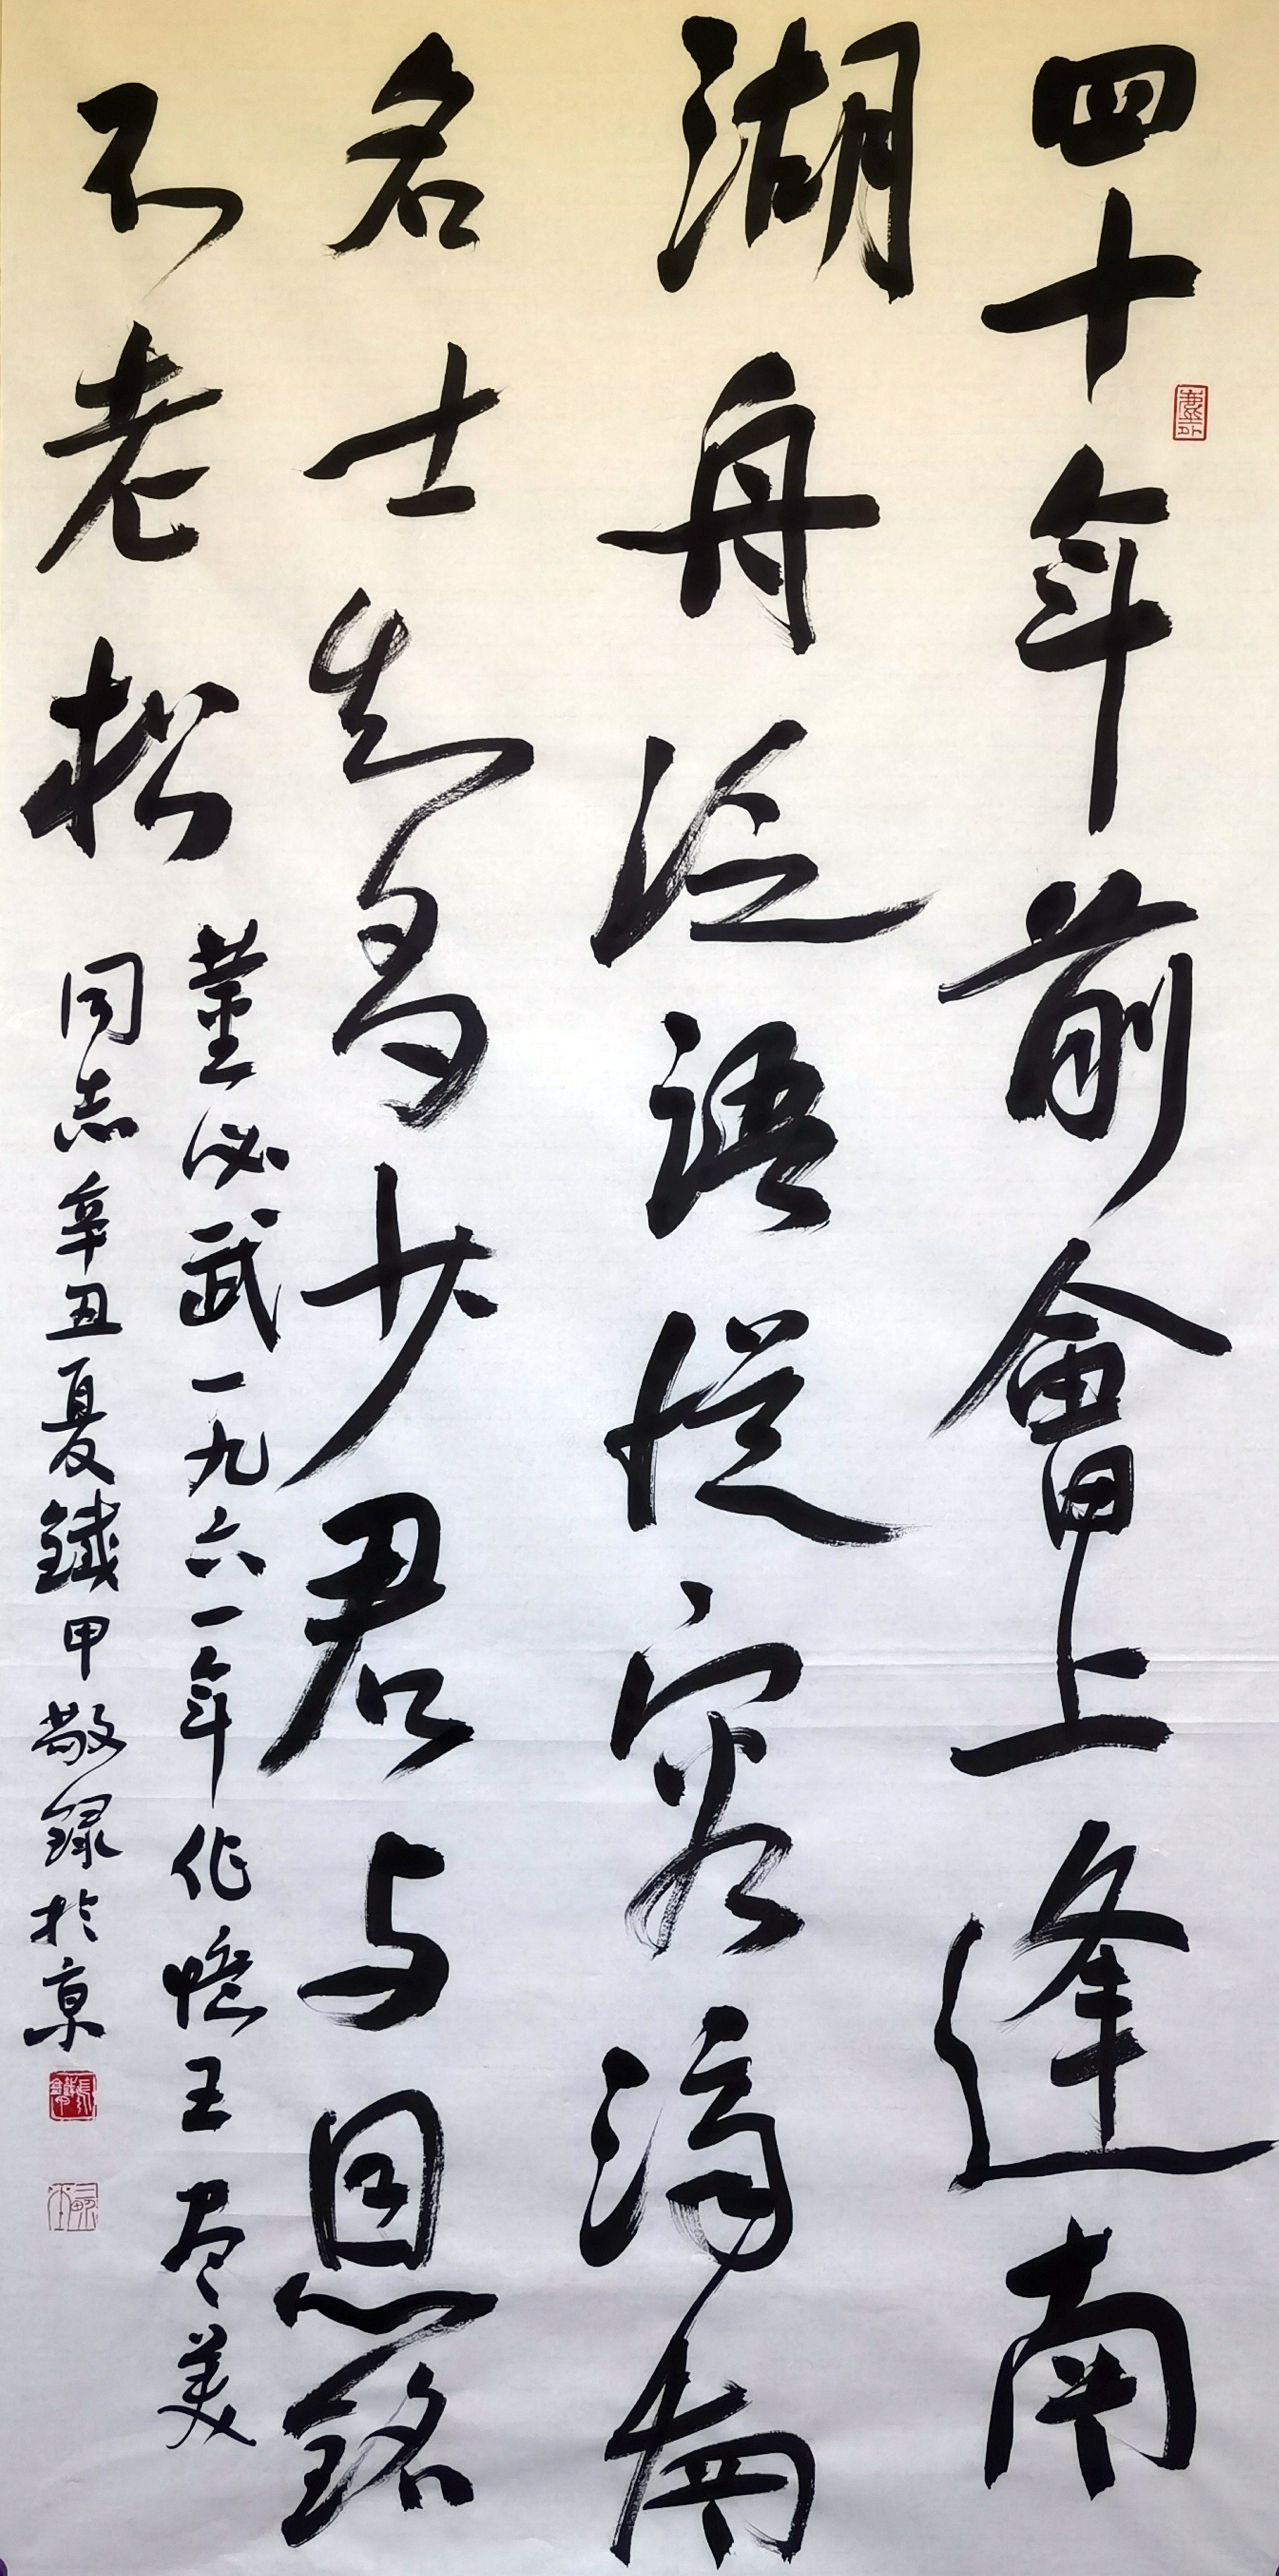 四十年前會上逢南
湖舟泛語從容濟南
名士知多少君与恩銘
不老松
董必武一九六一年作憶王尽美
同志辛丑夏鐵甲敬録於京